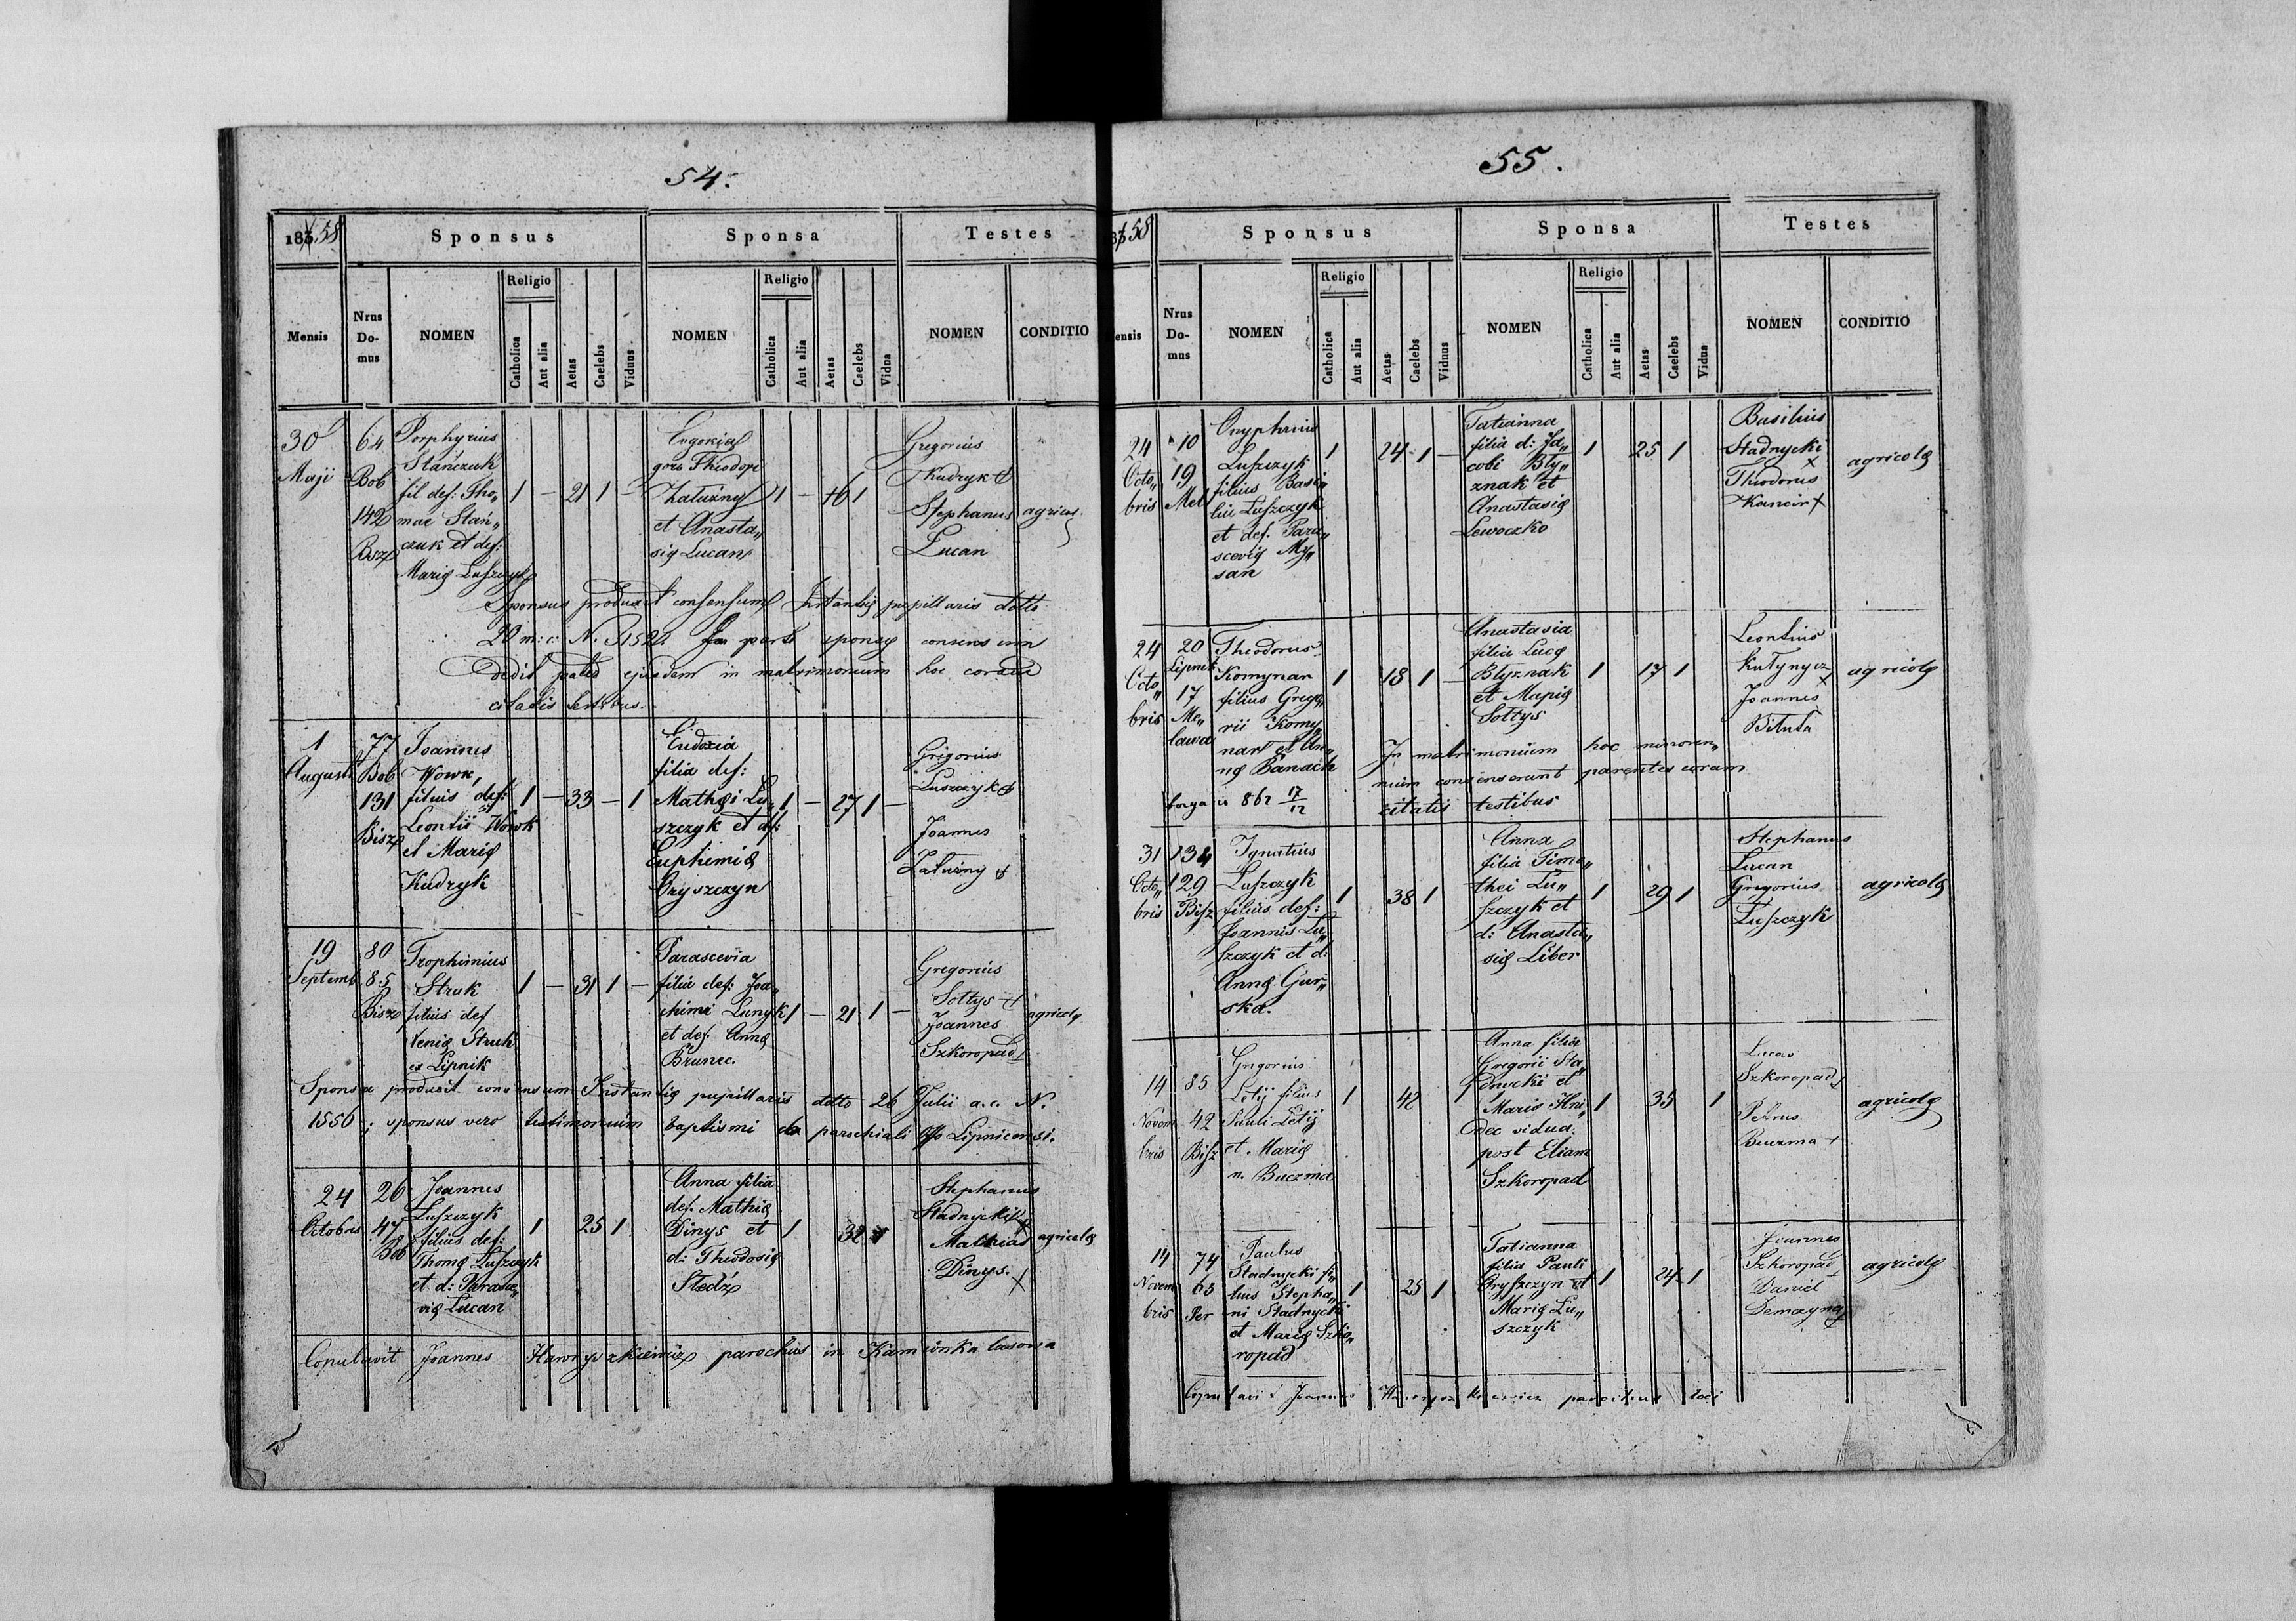 54.
1858
Sponsus
Sponsa
Testes
Mensis
Nrus Domus
NOMEN
Religio
Catholica
Aut alia
Aetas
Caelebs
Viduus
NOMEN
Religio
Catholica
Aut alia
Aetas
Caelebs
Vidua
NOMEN
CONDITIO
30
Maji
64
Bob
142
Bisz
Porphyrius
Stańczuk
fil def: Tho„
mae Stań„
czuk et def:
Marię Luszczyk
1 — 21 1 —
Theodori
Załużny
et Anasta„
się Lucan
1 — 1
Gregorius
Kudryk +
Stephanus
Lucan
agricol
Sponsus produxit consensum Instantię pupillaris dtto
20 m: c: N. parte sponsę consensum
dedit pater ejusdem in matrimonium hoc coram
citatis testibus.
1
Augusti
77
Bob
131
Bisz
Joannes
Wowk,
filius def:
Leontii Wowk
et Marię
Kudryk
1 — 33 — 1
Eudoxia
filia def:
Mathęi Lu„
szczyk et df:
Euphemię
Oryszczyn
1 — 27 1 —
Grigorius
Luszczyk +
Joannes
Załużny +
19
Septemb
80
85
Bisz
Trophimius
Struk
filius def
Struk
ex Lipnik
1 — 31 1 —
Parascevia
filia def: Joa„
chimi Lunyk
et def. Annę
Brunec.
1 — 21 1 —
Gregorius
Sołtys +
Joannes
Szkoropad +
agricolę
Sponsa produxit consensum Instantię pupillaris dtto 26 Julii a.c. N.
1556; sponsus vero testimonium baptismi parochiali Lipnicensi.
24
Octobris
26
47
Bob
Joannes
Luszczyk
filius def:
Thomę Luszczyk
et d: Parasce„
vię Lucan
1 25 1
Anna filia
def. Mathię
Dinys et
d: Theodosię
Sledź
1 32 1
Stephanus
Stadnycki +
Mathias
Dinys. +
agricolę
Copulavit Joannes Hawryszkiewicz parochus in Kamionka lasowa
55.
1858
Sponsus
Sponsa
Testes
Mensis
Nrus Domus
NOMEN
Religio
Catholica
Aut alia
Aetas
Caelebs
Viduus
NOMEN
Religio
Catholica
Aut alia
Aetas
Caelebs
Vidua
NOMEN
CONDITIO
24
Octo„
bris
10
19
Mel
Onyphrius
Luszczyk
filius Basi„
lii Luszczyk
et def. Para„
scevię My„
san
1 24 1 —
Tatianna
filia d: Ja„
cobi Bły„
znak et
Anastasię
Lewoczko
1 25 1
Basilius
Stadnycki
+
Theodorus
Kancir +
agricolę
24
Octo„
bris
20
Lipnik
17
Me„
lawa
Theodorus
Komynar
filius Grego„
rii Komy„
nar et An„
nę Banach
1 18 1 —
Anastasia
filia Lucę
Błyznak
et Marię
Sołtys
1 17 1
Leontius
Kutynycz
Joannes +
Bituta
agricolę
In matrimonium hoc minoren„
nium consenserunt parentes coram
citatis testibus
862 17/12
31
Octo„
bris
134
129
Bisz
Ignatius
Luszczyk
filius def:
Joannis Lu„
szczyk et d:
Annę Gur„
ska.
1 38 1
Anna
filia Timo„
thei Lu„
szczyk et
d: Anasta„
się Liber
1 29 1
Stephanus
Lucan
Grigorius
+
Luszczyk
agricolę
14
Novem
bris
85
42
Bisz
Gregorius
Letij filius
Pauli Letij
et Marię
n. Buczma
1 42
Anna filia
Gregorii Sta„
dnycki et
Marię Hni„
dec vidua
post Eliam
Szkoropad
1 35 1
Lucas
Szkoropad +
Petrus
Buczma +
agricolę
14
Novem
bris
74
63
Per
Paulus
Stadnycki fi„
lius Stepha„
ni Stadnycki
et Marię Szko„
ropad
1 25 1
Tatianna
filia Pauli
Oryszczyn et
Marię Lu„
szczyk
1 24 1
Joannes
Szkoropad +
Daniel
Demczyna +
agricolę
Copulavi Joannes Hawryszkiewicz parochus loci